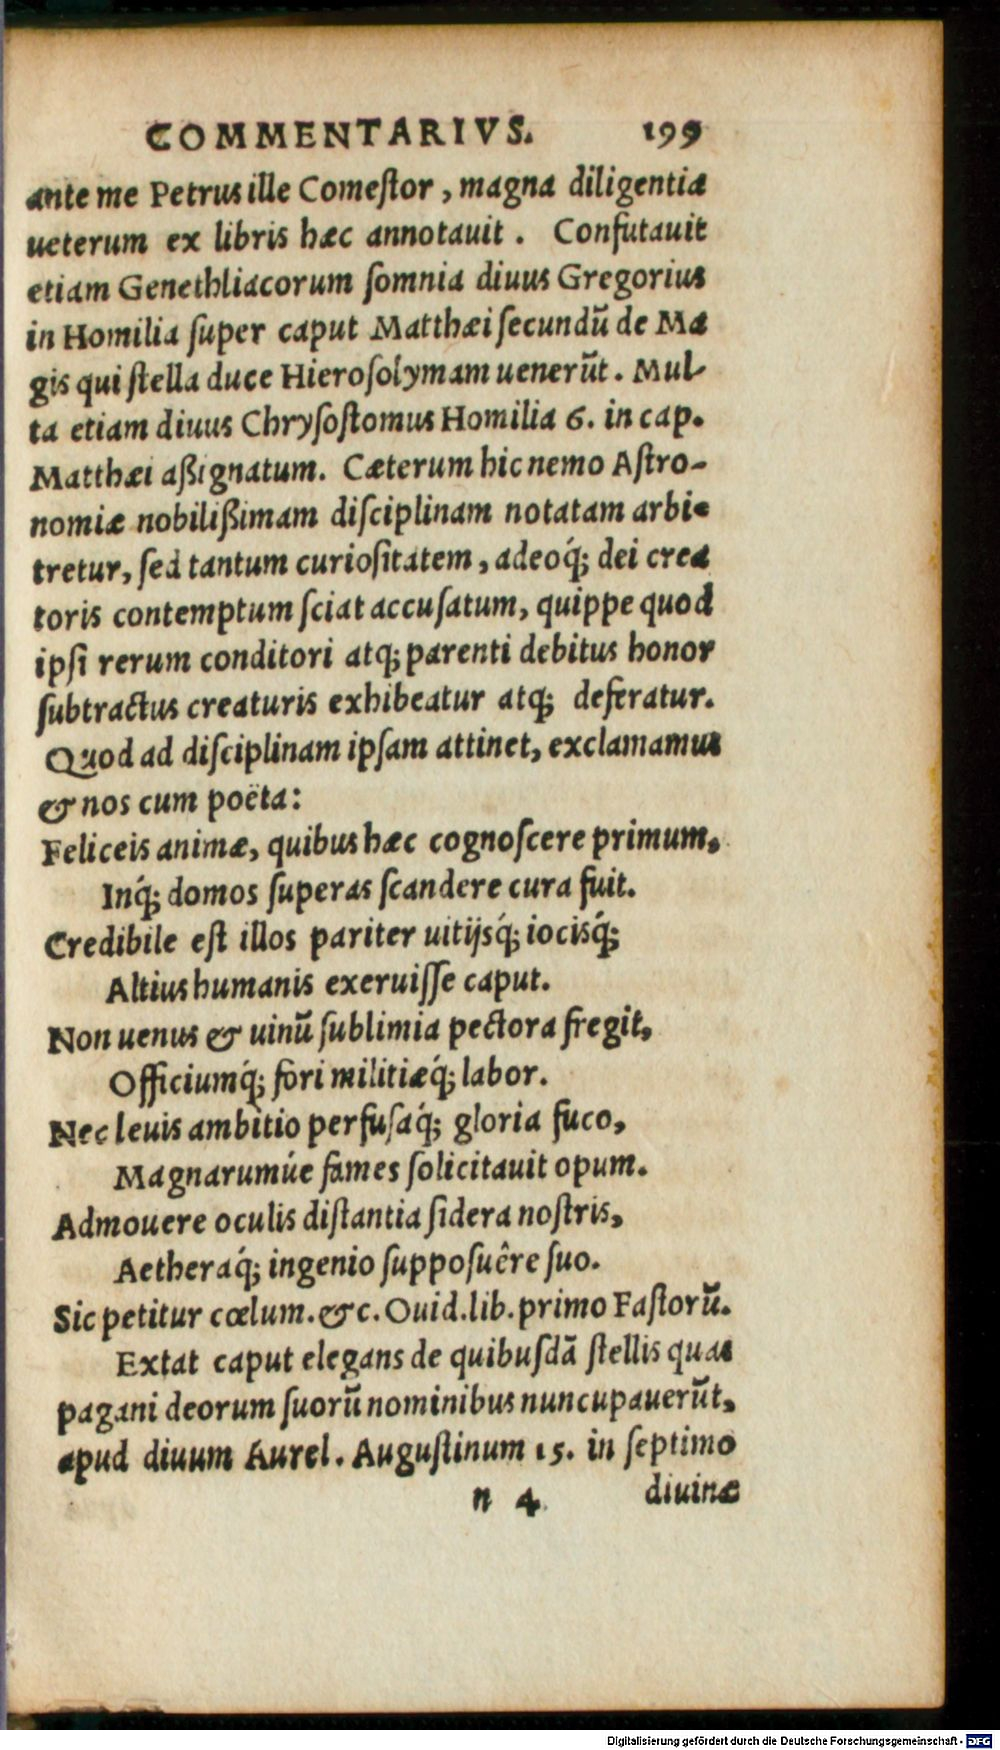 COMMENTARIVS. 199
ante me Petrus ille Comeſtor, magna diligentia
ueterum ex libris hæc annotauit. Confutauit
etiam Genethliacorum ſomnia diuus Gregorius
in Homilia ſuper caput Matthæi ſecundũ de Ma
gis qui ſtella duce Hieroſolymam uenerũt. Mul-
ta etiam diuus Chryſoſtomus Homilia 6. in cap.
Matthæi aßignatum. Cæterum hic nemo Aſtro-
nomiæ nobilißimam diſciplinam notatam arbi-
tretur, ſed tantum curioſitatem, adeoq́; dei crea
toris contemptum ſciat accuſatum, quippe quod
ipſi rerum conditori atq; parenti debitus honor
ſubtractus creaturis exhibeatur atq; deferatur.
Quod ad diſciplinam ipſam attinet, exclamamus
& nos cum poëta:
Feliceis animæ, quibus hæc cognoſcere primum,
Inq́; domos ſuperas ſcandere cura fuit.
Credibile eſt illos pariter uitijsq́; iocisq́;
Altius humanis exeruiſſe caput.
Non uenus & uinũ ſublimia pectora fregit,
Officiumq́; fori militiæq́; labor.
Nec leuis ambitio perfuſaq́; gloria fuco,
Magnarumúe fames ſolicitauit opum.
Admouere oculis diſtantia ſidera noſtris,
Aetheraq́; ingenio ſuppoſuêre ſuo.
Sic petitur cœlum. &c. Ouid. lib. primo Faſtorũ.
Extat caput elegans de quibuſdã ſtellis quas
pagani deorum ſuorũ nominibus nuncupauerũt,
apud diuum Aurel. Auguſtinum 15. in ſeptimo
n 4 diuinæ
Digitalisierung gefördert durch die Deutsche Forschungsgemeinschaft - DFG